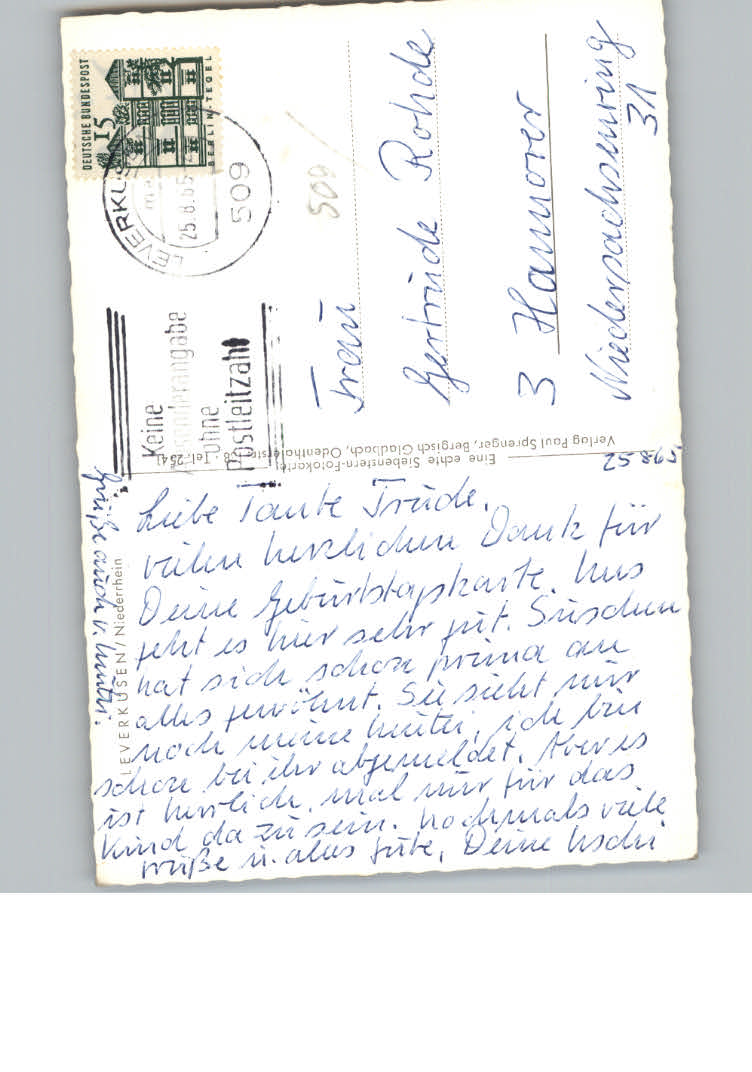 DEUTSCHE BUNDESPOST
15
BERLIN-TEGEL
LEVERKUS
25.8.65
509
509
Keine
ohne
Postleitzahl
Frau
Gertrude Rohde
3 Hannover
Niedersachsenring
31
Eine echte Siebenstern-Fotokarte
Verlag Paul Sprenger, Bergisch Gladbach, Odenthaler
LEVERKUSEN / Niederrhein
25.8.65
Liebe Tante Trude,
vielen herzlichen Dank für
Deine Geburtstagskarte. Uns
geht es hier sehr gut. Suschen
hat sich schon prima an
alles gewöhnt. Sie sieht nur
noch meine Mutti, ich bin
schon bei ihr abgemeldet. Aber es
ist herrlich, mal nur für das
Kind da zu sein. Nochmals viele
Grüße u. alles Gute, Deine Uschi
Grüße auch v. Mutti.